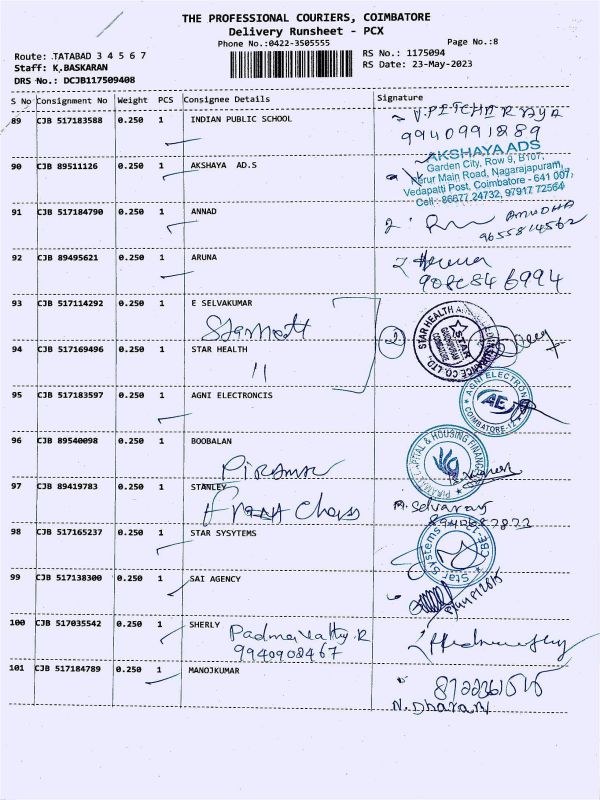 THE PROFESSIONAL COURIERS, COIMBATORE
Delivery Runsheet - PCX
Phone No.:0422-3505555 Page No.:8
Route: TATABAD 3 4 5 6 7 RS No.: 1175094
Staff: K,BASKARAN RS Date: 23-May-2023
DRS No.: DCJB117509408
S No Consignment No Weight PCS Consignee Details Signature
89 CJB 517183588 0.250 1 INDIAN PUBLIC SCHOOL
9940991889
90 CJB 89511126 0.250 1 AKSHAYA AD.S AKSHAYA ADS
Garden City, Row 9, B107,
Perur Main Road, Nagarajapuram,
Vedapatti Post, Coimbatore - 641 007,
Cell : 86677 24732, 97917 72564
91 CJB 517184790 0.250 1 ANNAD ANUDHA
9655814562
92 CJB 89495621 0.250 1 ARUNA Aruna
93 CJB 517114292 0.250 1 E SELVAKUMAR
94 CJB 517169496 0.250 1 STAR HEALTH 2
11
95 CJB 517183597 0.250 1 AGNI ELECTRONCIS AGNI ELECTRON AE COIMBATORE-12
96 CJB 89540098 0.250 1 BOOBALAN
PIRAMAL CAPITAL & HOUSING FINANCE
97 CJB 89419783 0.250 1 STANLEY
98 CJB 517165237 0.250 1 STAR SYSYTEMS Star Systems CBE-12
99 CJB 517138300 0.250 1 SAI AGENCY
100 CJB 517035542 0.250 1 SHERLY
Padmavathy.R
9940908467
101 CJB 517184789 0.250 1 MANOJKUMAR
N. Dharani